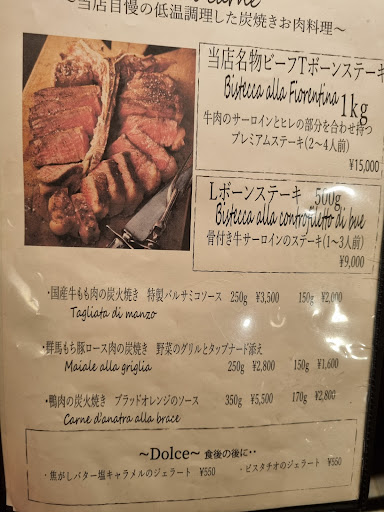 ～当店自慢の低温調理した炭焼きお肉料理～
当店名物ビーフTボーンステーキ
Bistecca alla Fiorentina 1kg
牛肉のサーロインとヒレの部分を合わせ持つ
プレミアムステーキ(2～4人前)
¥15,000
Lボーンステーキ 500g
Bistecca alla controfiletto di bue
骨付き牛サーロインのステーキ(1～3人前)
¥9,000
・国産牛もも肉の炭火焼き 特製バルサミコソース 250g ¥3,500 150g ¥2,000
Tagliata di manzo
・群馬もち豚ロース肉の炭焼き 野菜のグリルとタップナード添え
Maiale alla griglia 250g ¥2,800 150g ¥1,600
・鴨肉の炭火焼き ブラッドオレンジのソース 350g ¥5,500 170g ¥2,800
Carne d'anatra alla brace
～Dolce～ 食後の後に・・
・焦がしバター塩キャラメルのジェラート ¥550 ・ピスタチオのジェラート ¥550